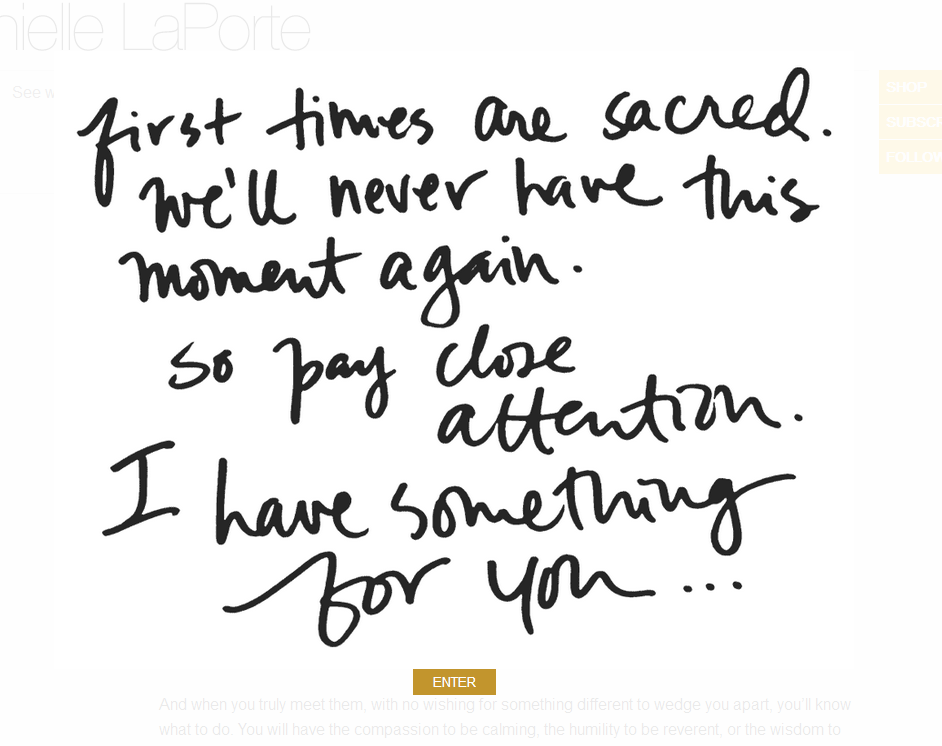 nielle LaPorte
See w
SHOP
SUBSCI
FOLLOW
first times are sacred.
we'll never have this
moment again.
so pay close
attention.
I have something
for you ...
ENTER
And when you truly meet them, with no wishing for something different to wedge you apart, you'll know
what to do. You will have the compassion to be calming, the humility to be reverent, or the wisdom to